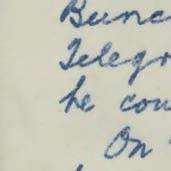 Bunc
Telegr
he cou
On